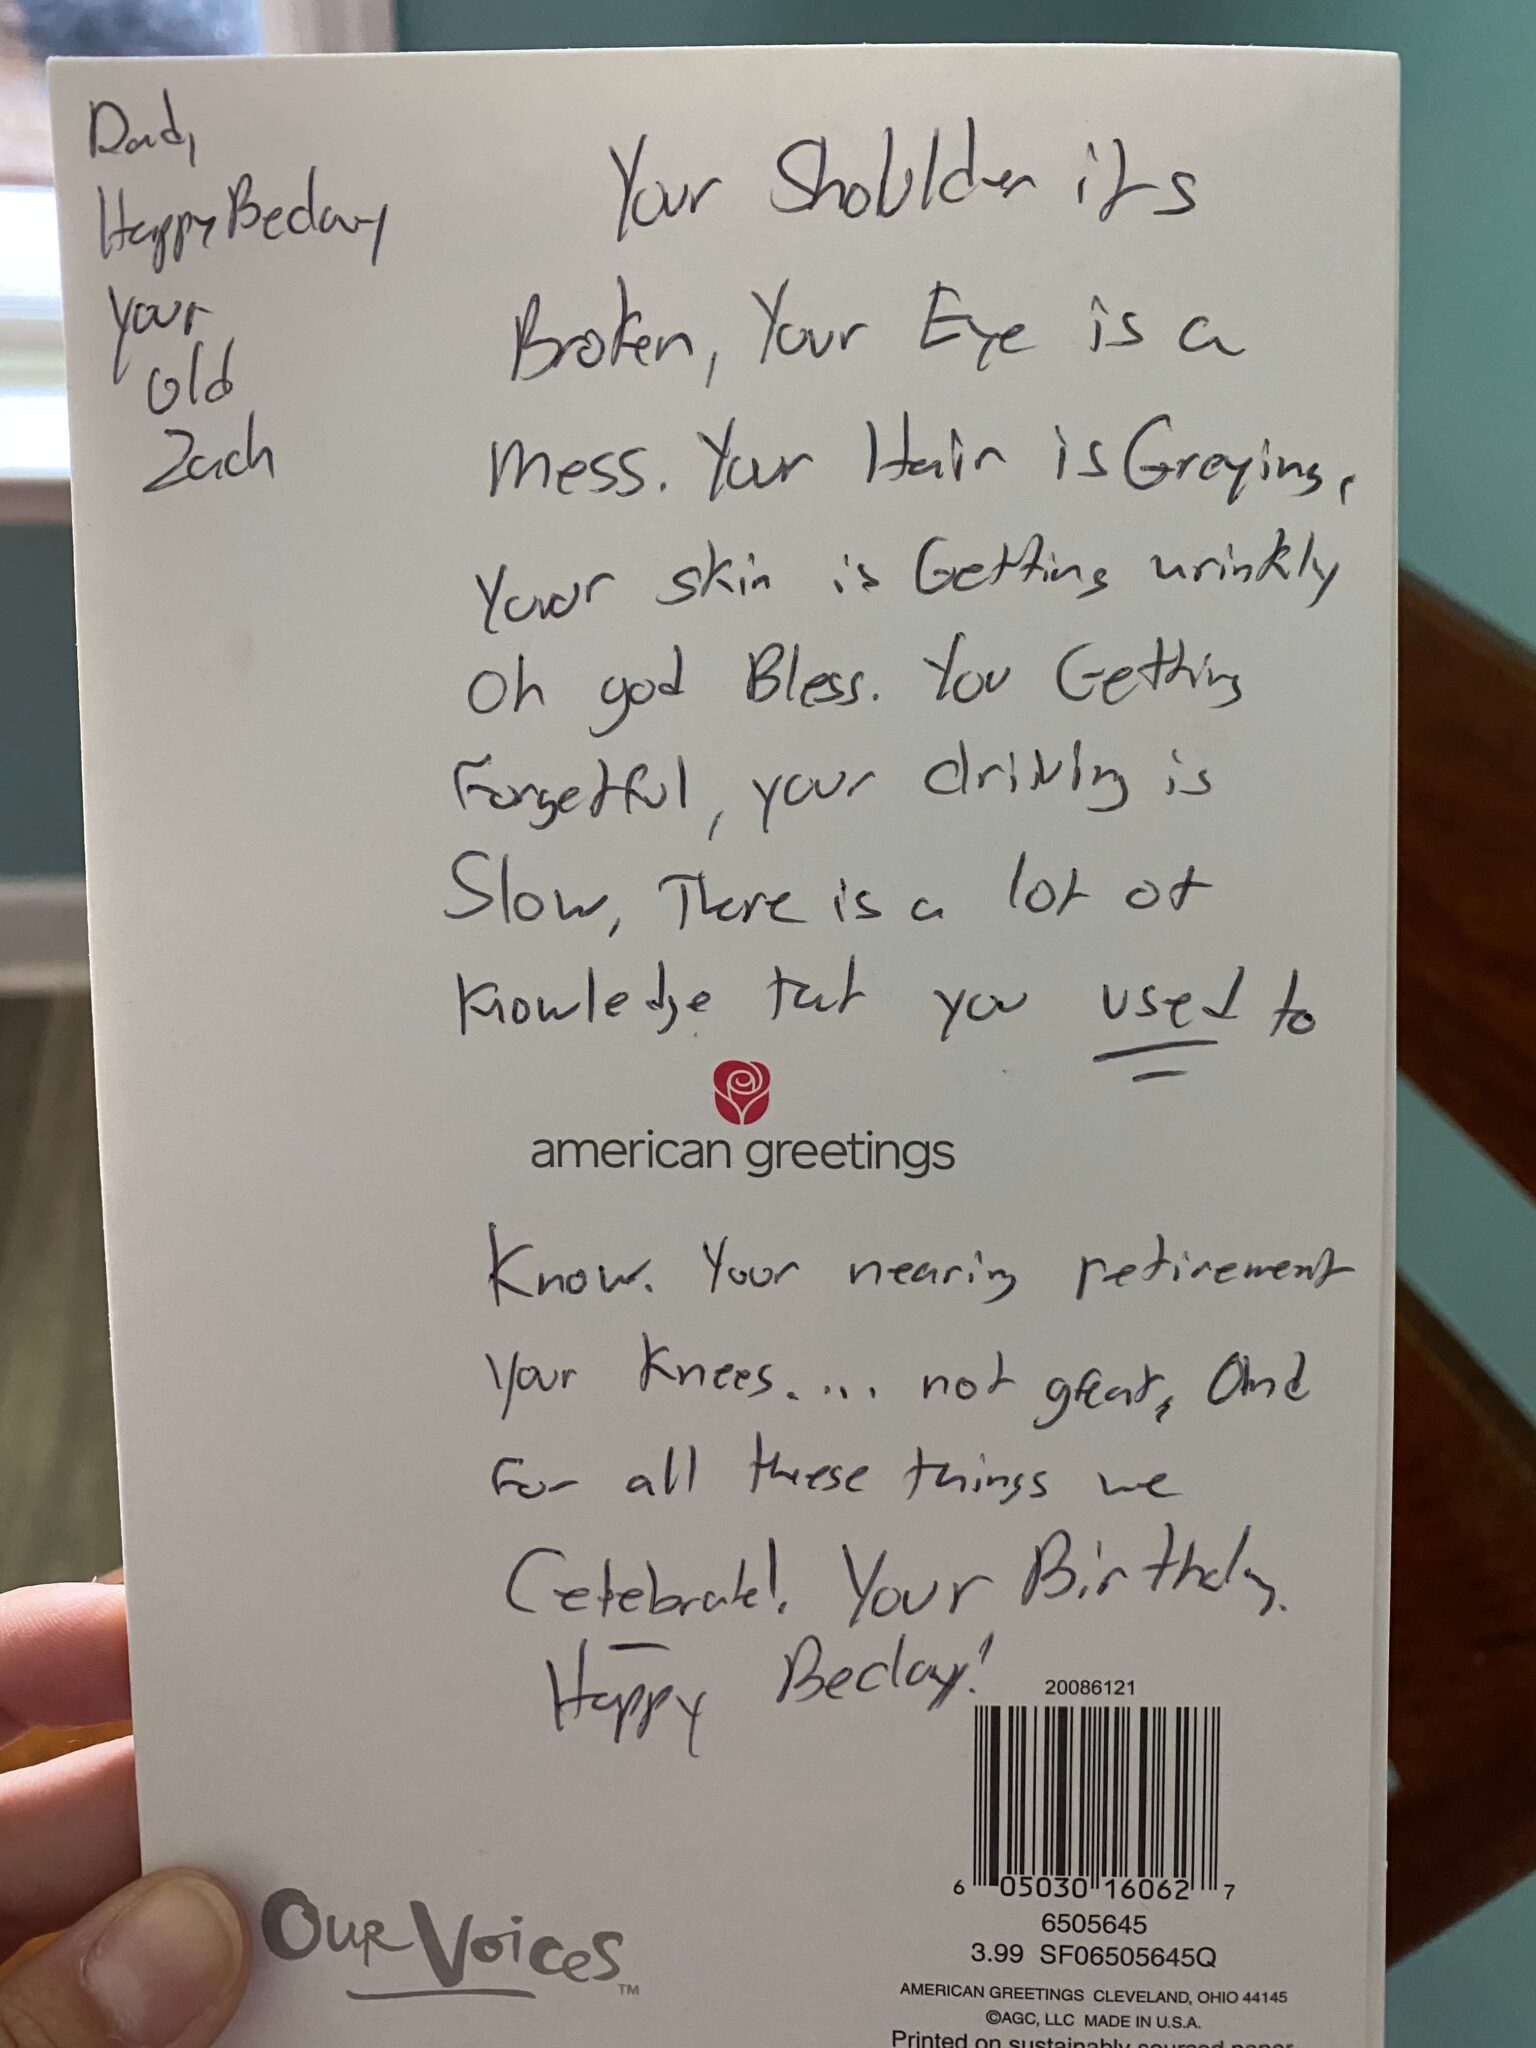 Dad,
Happy Beday
your
old
Zach
Your Shoulder its
Broken, Your Eye is a
mess. Your Hair is Greying,
Your skin is Getting wrinkly
Oh god Bless. You Getting
Forgetful, your driving is
Slow, There is a lot of
Knowledge that you used to
american greetings
Know. Your nearing retirement
Your Knees.... not great, And
For all these things we
Celebrate! Your Birthday.
Happy Beday!
20086121
6 05030 16062 7
6505645
3.99 SF06505645Q
AMERICAN GREETINGS CLEVELAND, OHIO 44145
©AGC, LLC MADE IN U.S.A.
Printed on sustainably sourced paper
OUR VOICES™